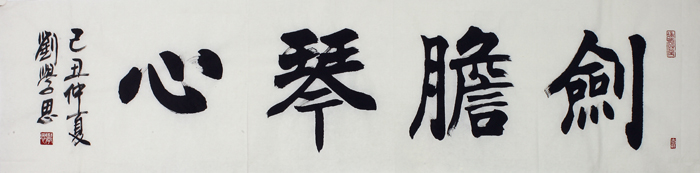 劍膽琴心
己丑仲夏
劉學思